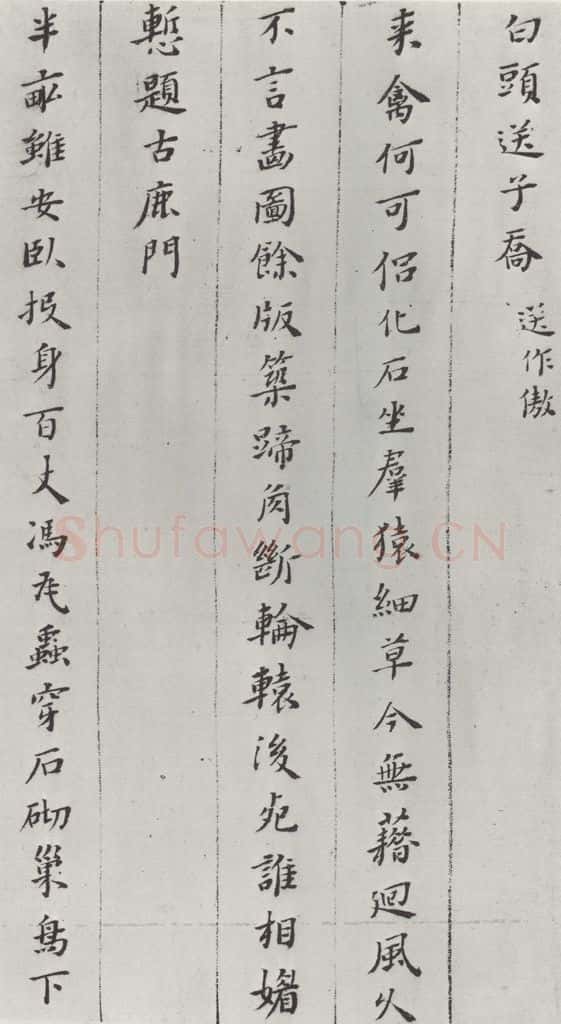 白頭送子喬 送作傲
來禽何可侶化石坐羣猿細草今無藉迴風久
不言畫圖餘版築蹄角斷輪轅後死誰相媚
慙題古鹿門
半畝雖安臥投身百丈馮虎蟲穿石砌巢鳥下
Shufawang.CN